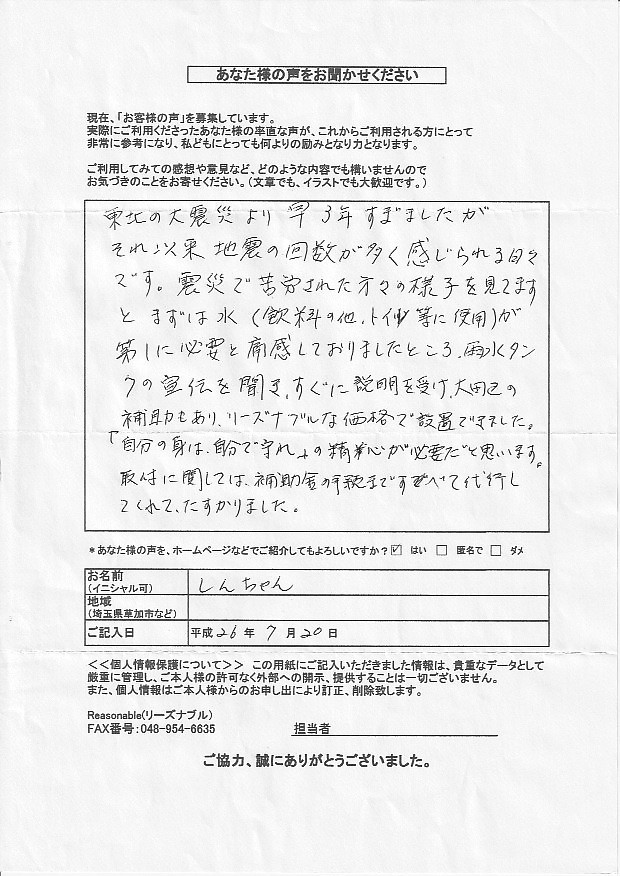 あなた様の声をお聞かせください
現在、「お客様の声」を募集しています。
実際にご利用くださったあなた様の率直な声が、これからご利用される方にとって
非常に参考になり、私どもにとっても何よりの励みとなり力となります。
ご利用してみての感想や意見など、どのような内容でも構いませんので
お気づきのことをお寄せください。(文章でも、イラストでも大歓迎です。)
東北の大震災より早3年すぎましたが
それ以来地震の回数が多く感じられる日々
です。震災で苦労された方々の様子を見てます
とまずは水(飲料の他、トイレ等に使用)が
第1に必要と痛感しておりましたところ、雨水タン
クの宣伝を聞き、すぐに説明を受け、大田区の
補助もあり、リーズナブルな価格で設置できました。
「自分の身は、自分で守れ」の精神が必要だと思います。
取付に関しては、補助金の手続まですべて代行し
てくれて、たすかりました。
*あなた様の声を、ホームページなどでご紹介してもよろしいですか?☑ はい □ 匿名で □ ダメ
お名前
(イニシャル可)
しんちゃん
地域
(埼玉県草加市など)
ご記入日 平成26年7月20日
<<個人情報保護について>> この用紙にご記入いただきました情報は、貴重なデータとして
厳重に管理し、ご本人様の許可なく外部への開示、提供することは一切ございません。
また、個人情報はご本人様からのお申し出により訂正、削除致します。
Reasonable(リーズナブル)
FAX番号:048-954-6635 担当者
ご協力、誠にありがとうございました。